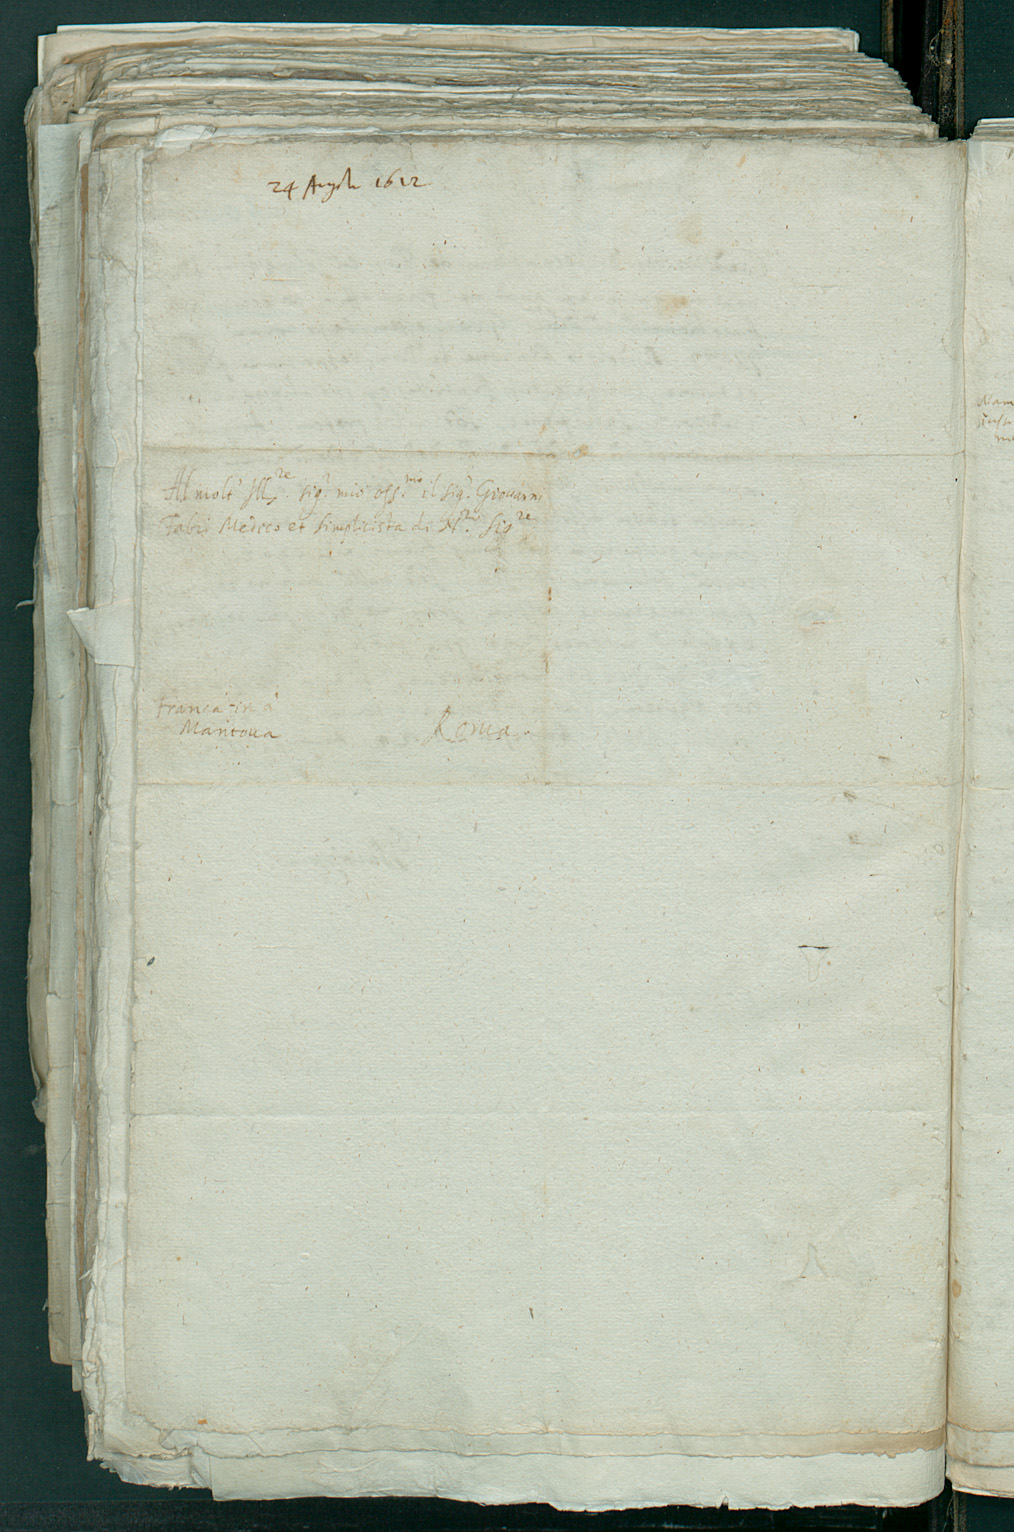 24 Augsti 1612
Al molt' Ill.re sig.r mio oss.mo il sig.r Giovanni
Fabri Medico et simplicista di N.ro Sig.re
Franca in a
Mantoua
Roma.